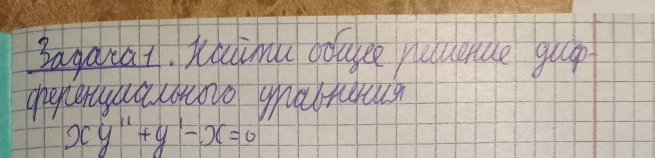 Задача 1. Найти общее решение диф-
ференциального уравнения
xy'' + y' - x = 0